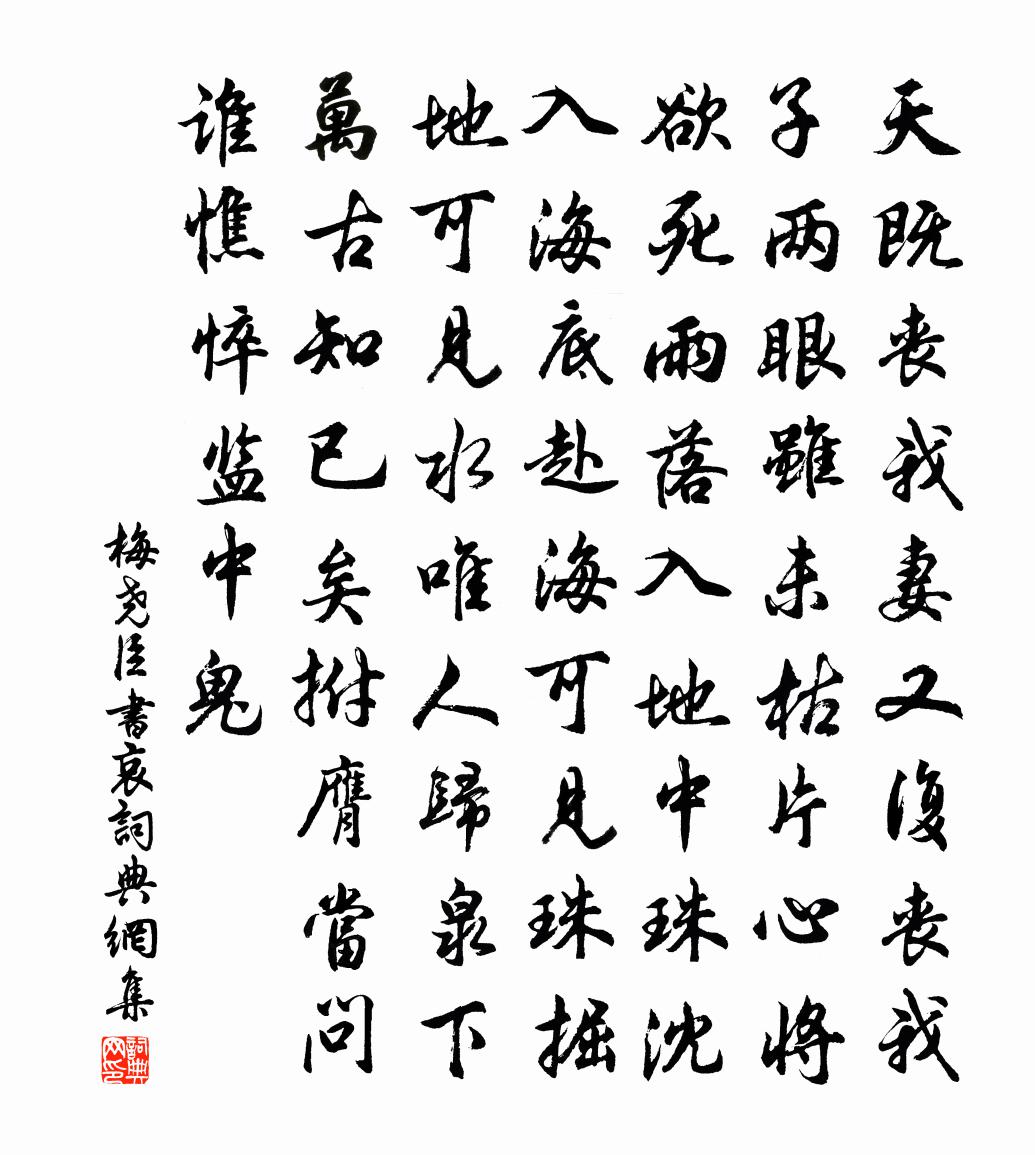 天既丧我妻又復丧我
子两眼雖未枯片心将
欲死雨落入地中珠沈
入海底赴海可見珠掘
地可見水唯人歸泉下
萬古知已矣拊膺當問
谁憔悴监中鬼
梅尧臣書哀詞典網集
詞典网印